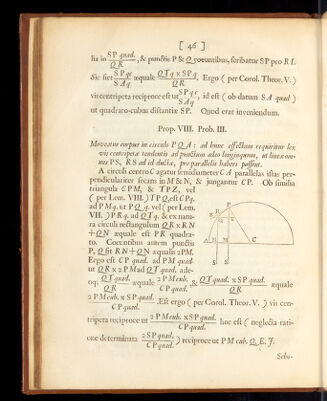 [ 46 ]
lia in SP quad. / QR, & punctis P & Q coeuntibus, scribatur SP pro RI.
Sic fiet SP qc / SAq æquale QTq x SPq / QR. Ergo (per Corol. Theor. V.)
vis centripeta reciproce est ut SP qc / SAq, id est (ob datum SA quad)
ut quadrato-cubus distantiæ SP. Quod erat inveniendum.
Prop. VIII. Prob. III.
Moveatur corpus in circulo PQA: ad hunc effectum requiritur lex
vis centripetæ tendentis ad punctum adeo longinquum, ut lineæ om-
nes PS, RS ad id ductæ, pro parallelis haberi possint.
A circuli centro C agatur semidiameter CA parallelas istas per-
pendiculariter secans in M & N, & jungantur CP. Ob similia
triangula CPM, & TPZ, vel
(per Lem. VIII.) TPQ, est CPq.
ad PMq. ut PQq. vel (per Lem.
VII.) PRq. ad QTq. & ex natu-
ra circuli rectangulum QR x RN
+ QN æquale est PR quadra-
to. Coeuntibus autem punctis
P, Q fit RN + QN æqualis 2PM.
Ergo est CP quad. ad PM quad.
ut QR x 2PM ad QT quad. ade-
oq; QT quad. / QR æquale 2PM cub. / CP quad., & QT quad. x SP quad. / QR æquale
2PM cub. x SP quad. / CP quad. Est ergo (per Corol. Theor. V.) vis cen-
tripeta reciproce ut 2PM cub. x SP quad. / CP quad. hoc est (neglecta rati-
one determinata 2SP quad. / CP quad.) reciproce ut PM cub. Q. E. I.
Scho-
P
Z
R
T
Q
A
N
M
C
S
S